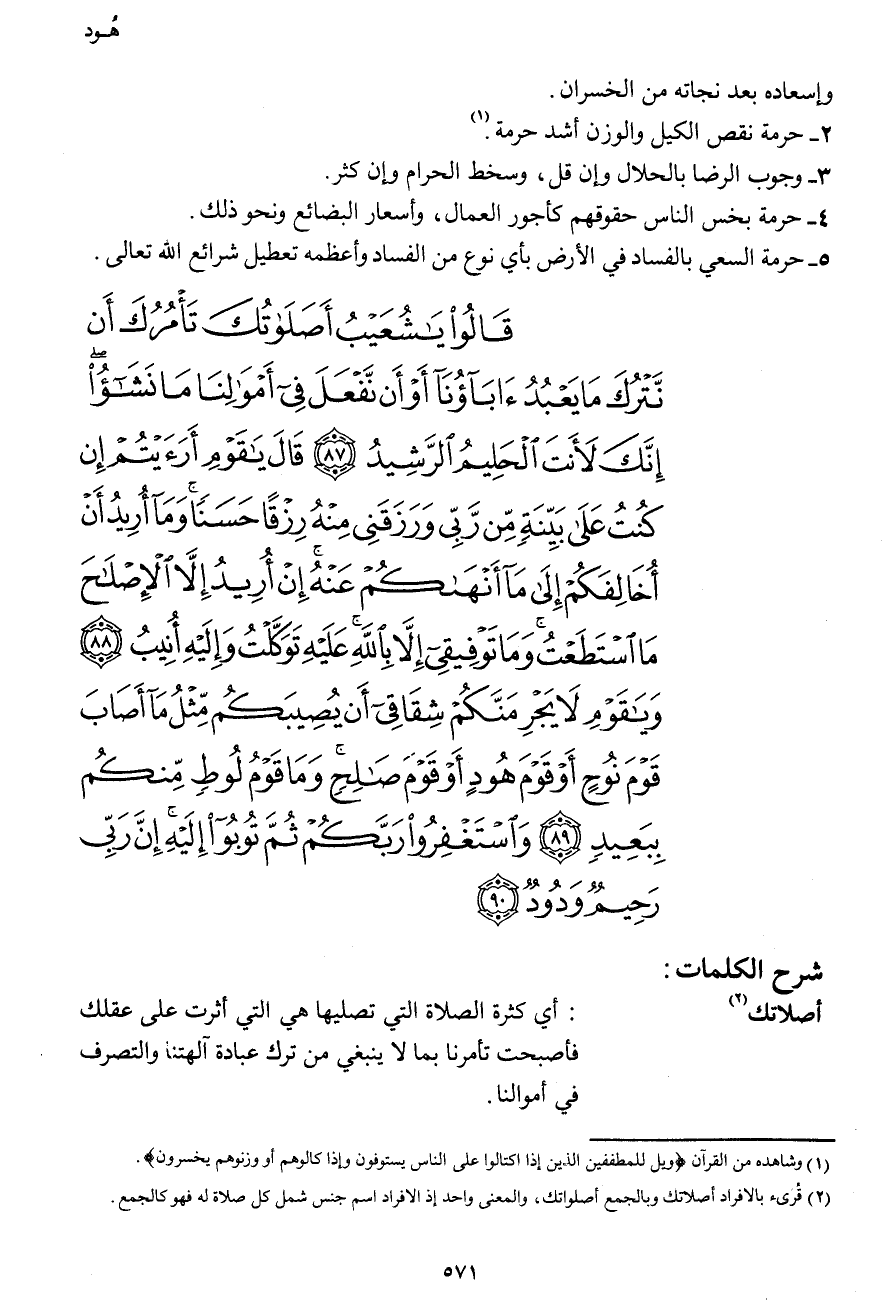 هُـود
وإسعاده بعد نجاته من الخسران.
٢ـ حرمة نقص الكيل والوزن أشد حرمة.(١)
٣ـ وجوب الرضا بالحلال وإن قل، وسخط الحرام وإن كثر.
٤ـ حرمة بخس الناس حقوقهم كأجور العمال، وأسعار البضائع ونحو ذلك.
٥ـ حرمة السعي بالفساد في الأرض بأي نوع من الفساد وأعظمه تعطيل شرائع الله تعالى.
قَالُوا۟ يَـٰشُعَيْبُ أَصَلَوٰتُكَ تَأْمُرُكَ أَن
نَّتْرُكَ مَا يَعْبُدُ ءَابَآؤُنَآ أَوْ أَن نَّفْعَلَ فِىٓ أَمْوَٰلِنَا مَا نَشَـٰٓؤُا۟ ۖ
إِنَّكَ لَأَنتَ ٱلْحَلِيمُ ٱلرَّشِيدُ ﴿٨٧﴾ قَالَ يَـٰقَوْمِ أَرَءَيْتُمْ إِن
كُنتُ عَلَىٰ بَيِّنَةٍ مِّن رَّبِّى وَرَزَقَنِى مِنْهُ رِزْقًا حَسَنًا ۚ وَمَآ أُرِيدُ أَنْ
أُخَالِفَكُمْ إِلَىٰ مَآ أَنْهَىٰكُمْ عَنْهُ ۚ إِنْ أُرِيدُ إِلَّا ٱلْإِصْلَـٰحَ
مَا ٱسْتَطَعْتُ ۚ وَمَا تَوْفِيقِىٓ إِلَّا بِٱللَّهِ ۚ عَلَيْهِ تَوَكَّلْتُ وَإِلَيْهِ أُنِيبُ ﴿٨٨﴾
وَيَـٰقَوْمِ لَا يَجْرِمَنَّكُمْ شِقَاقِىٓ أَن يُصِيبَكُم مِّثْلُ مَآ أَصَابَ
قَوْمَ نُوحٍ أَوْ قَوْمَ هُودٍ أَوْ قَوْمَ صَـٰلِحٍ ۚ وَمَا قَوْمُ لُوطٍ مِّنكُم
بِبَعِيدٍ ﴿٨٩﴾ وَٱسْتَغْفِرُوا۟ رَبَّكُمْ ثُمَّ تُوبُوٓا۟ إِلَيْهِ ۚ إِنَّ رَبِّى
رَحِيمٌ وَدُودٌ ﴿٩٠﴾
شرح الكلمات:
أصلاتك(٢) : أي كثرة الصلاة التي تصليها هي التي أثرت على عقلك
فأصبحت تأمرنا بما لا ينبغي من ترك عبادة آلهتنا والتصرف
في أموالنا.
(١) وشاهده من القرآن ﴿ويل للمطففين الذين إذا اكتالوا على الناس يستوفون وإذا كالوهم أو وزنوهم يخسرون﴾.
(٢) قُرىء بالافراد أصلاتك وبالجمع أصلواتك، والمعنى واحد إذ الافراد اسم جنس شمل كل صلاة له فهو كالجمع.
٥٧١